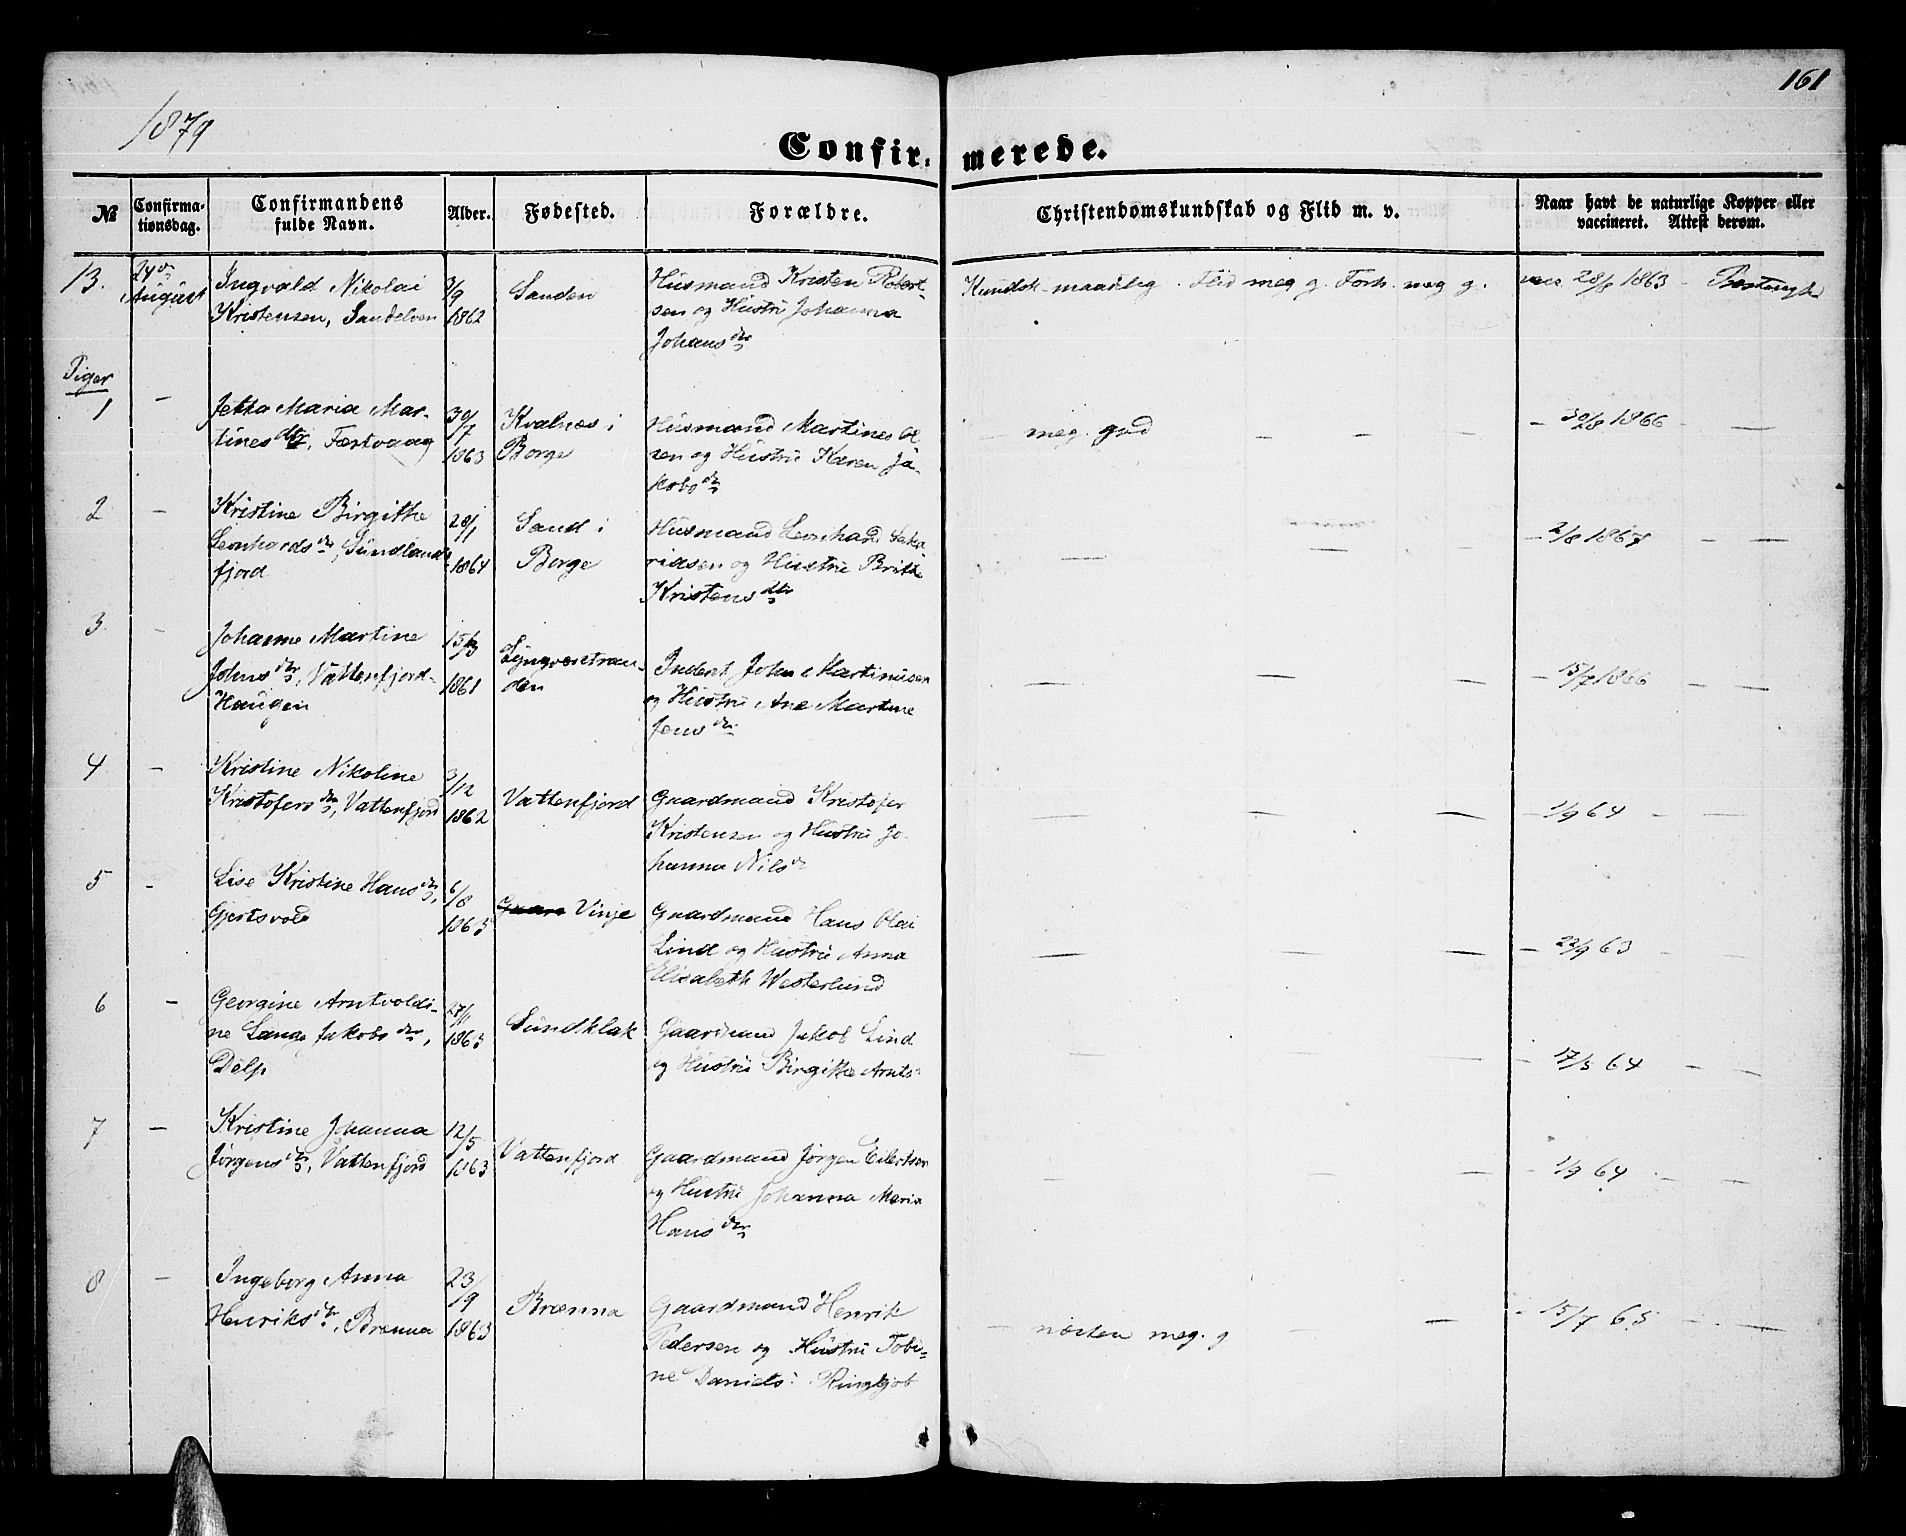 161
1879
Confir- merede.
№
Confirma-
tionsdag.
Confirmandens
fulde Navn.
Alder.
Fødested.
Forældre.
Christendomskundskab og Flid m. v.
Naar havt de naturlige Kopper eller
vaccineret. Attest derom.
13.
24de
August
Ingvald Nikolai
Kristensen, Sandelven
3/9
1862
Sanden
Husmand Kristen Robert-
sen og Hustru Johanna
Johansdtr
Kundsk. maadelig. Flid meg g. Forh. meg g.
vacc 28/8 1863 -
Piger
1
-
Jetta Maria Mar-
tinesdtr, Færtvaag
30/7
1863
Kvalnes i
Borge
Husmand Martines Ol-
sen og Hustru Karen Ja-
kobsdtr
meg. god - - -
- 1866 - -
2
-
Kristine Birgitte
Leonhardsdtr, Sundlands
fjord
28/1
1864
Sand i
Borge
Husmand Leonhard Saka-
riasen og Hustru Britte
Kristensdtr
- - -
- 2/8 1867 - -
3.
-
Johanne Martine
Johnsdtr, Vattenfjord-
Haugen
15/3
1861
Lyngværstran-
den
Inderst John Martinusen
og Hustru Ane Martine
Jensdtr
- - -
- 15/7 1866 - -
4
-
Kristine Nikoline
Kristofersdtr, Vattenfjord
3/12
1862
Vattenfjord
Gaardmand Kristofer
Kristensen og Hustru Jo-
hanna Nilsd
- - -
- 1/9 64 - -
5
-
Lise Kristine Hansdtr,
Gjertsvold
6/8
1863
Vinje
Gaardmand Hans Olai
Lind og Hustru Anna
Elisabeth Westerlund
- - -
- 22/9 63 - -
6
-
Georgine Arntvoldi-
ne Lange Jakobsdtr,
Delp
1863
Sundklak
Gaardmand Jakob Lind
og Hustru Birgitte Arnts
- - -
- 17/5 64 - -
7
-
Kristine Johanna
Jørgensdtr, Vattenfjord
12/5
1863
Vattenfjord
Gaardmand Jørgen Eilertsen
og Hustru Johanna Maria
Hansdtr
- - -
- 1/9 64 - -
8
-
Ingeborg Anna
Henriksdtr, Brenna
23/9
1863
Brenna
Gaardmand Henrik
Pedersen og Hustru Tobi-
ne Daniels: Ringkjøb
- næsten meg. g - -
- 15/7 65 - -